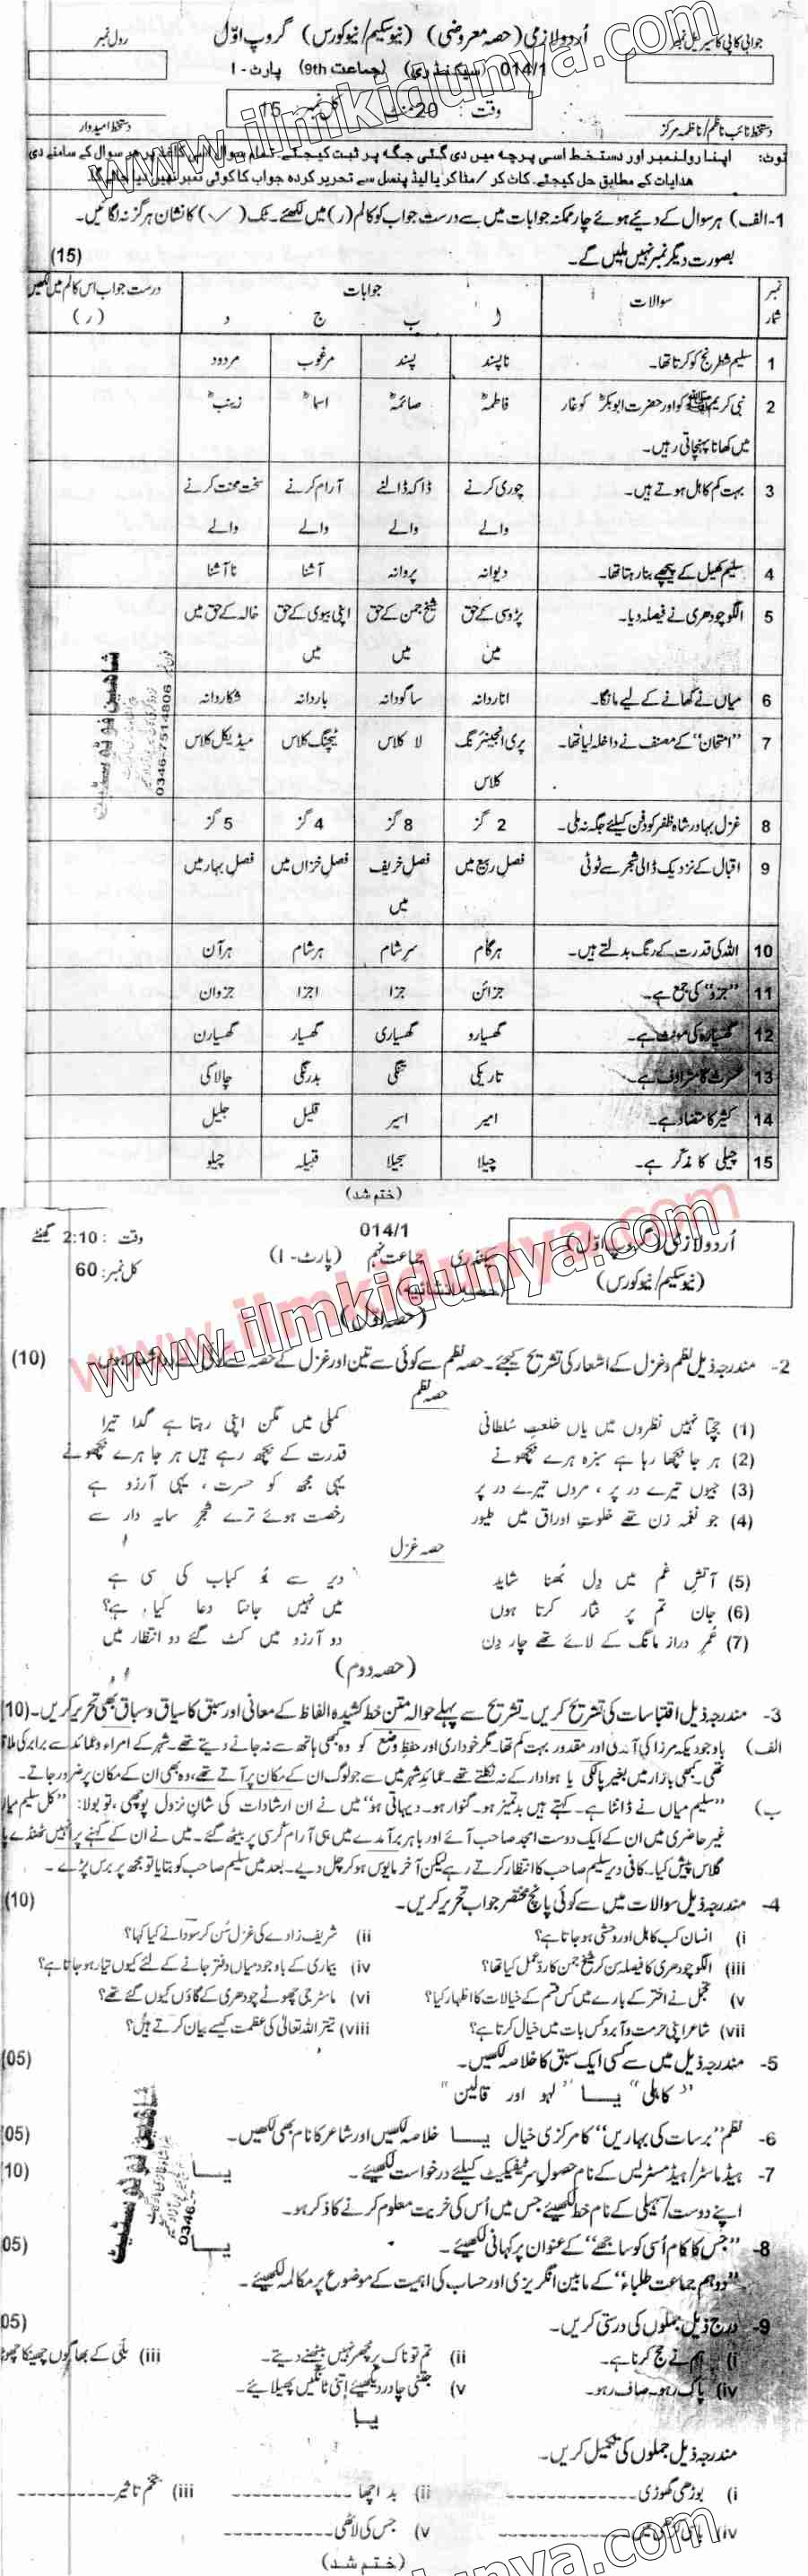 جوابی کاپی کا سیریل نمبر
اُردو لازمی (حصہ معروضی) (نیو سکیم/نیو کورس) گروپ اوّل
رول نمبر
014/1 (سیکنڈری) (جماعت 9th) پارٹ - I
وقت : 20 کل نمبر 15
دستخط نائب ناظم/ناظمہ مرکز
دستخط امیدوار
نوٹ: اپنا رولنمبر اور دستخط اسی پرچہ میں دی گئی جگہ پر ثبت کیجئے۔ تمام سوال ہر سوال کے سامنے دی
ہدایات کے مطابق حل کیجئے۔ کاٹ کر/مٹا کر یا لیڈ پنسل سے تحریر کردہ جواب کا کوئی نمبر نہیں
1- الف) ہر سوال کے دئیے ہوئے چار ممکنہ جوابات میں سے درست جواب کو کالم (ر) میں لکھئے۔ ٹِک (✓) کا نشان ہرگز نہ لگائیں۔
بصورت دیگر نمبر نہیں ملیں گے۔ (15)
نمبر شمار سوالات جوابات درست جواب اس کالم میں لکھیں
ا ب ج د (ر)
1 سلیم شطرنج کو کرتا تھا۔ ناپسند پسند مرغوب مردود
2 نبی کریم ﷺ کو اور حضرت ابوبکرؓ کو غار فاطمہؓ صائمہؓ اسماؓ زینبؓ
میں کھانا پہنچاتی رہیں۔
3 بہت کم کاہل ہوتے ہیں۔ چوری کرنے ڈاکہ ڈالنے آرام کرنے سخت محنت کرنے
والے والے والے والے
4 سلیم کھیل کے پیچھے بنا رہتا تھا۔ دیوانہ پروانہ آشنا ناآشنا
5 الگو چودھری نے فیصلہ دیا۔ پڑوسی کے حق شیخ جمن کے حق اپنی بیوی کے حق خالہ کے حق میں
میں میں میں
6 میاں نے کھانے کے لیے مانگا۔ اناردانہ ساگودانہ باردانہ شکاردانہ
7 "امتحان" کے مصنف نے داخلہ لیا تھا۔ پری انجینئرنگ لا کلاس ٹیچنگ کلاس میڈیکل کلاس
کلاس
8 غزل بہادر شاہ ظفر کو دفن کیلئے جگہ نہ ملی۔ 2 گز 8 گز 4 گز 5 گز
9 اقبال کے نزدیک ڈالی شجر سے ٹوٹی فصلِ ربیع میں فصلِ خریف فصلِ خزاں میں فصلِ بہار میں
میں
10 اللہ کی قدرت کے رنگ بدلتے ہیں۔ ہرگام سرِشام ہرشام ہرآن
11 "جزو" کی جمع ہے۔ جزائن جزا اجزا جزوان
12 گھسیارہ کی مؤنث ہے۔ گھسیارو گھسیاری گھسیار گھسیارن
13 تاریکی تنگی بدرنگی چالاکی
14 کثیر کا متضاد ہے۔ امیر اسیر قلیل جلیل
15 چیلی کا مذکر ہے۔ چیلا سجیلا قبیلہ چیلو
(ختم شد)
شاہین فوٹو سٹیٹ
0346-7514806
اُردو لازمی (گروپ اوّل)
(نیو سکیم/نیو کورس)
014/1
سیکنڈری جماعت نہم (پارٹ - I)
حصہ انشائیہ
وقت : 2:10 گھنٹے
کل نمبر: 60
(حصہ اوّل)
2- مندرجہ ذیل نظم و غزل کے اشعار کی تشریح کیجئے۔ حصہ نظم سے کوئی سے تین اور غزل کے حصہ سے (10)
حصہ نظم
(1) جچتا نہیں نظروں میں یاں خلعتِ سُلطانی کملی میں مگن اپنی رہتا ہے گدا تیرا
(2) ہر جا بچھا رہا ہے سبزہ ہرے بچھونے قدرت کے بچھ رہے ہیں ہر جا ہرے بچھونے
(3) جیوں تیرے در پر ، مروں تیرے در پر یہی مجھ کو حسرت ، یہی آرزو ہے
(4) جو نغمہ زن تھے خلوتِ اوراق میں طیور رخصت ہوئے ترے شجرِ سایہ دار سے
حصہ غزل
(5) آتشِ غم میں دِل بُھنا شاید دیر سے بُو کباب کی سی ہے
(6) جان تم پر نثار کرتا ہوں میں نہیں جانتا دعا کیا ہے؟
(7) عُمرِ دراز مانگ کے لائے تھے چار دِن دو آرزو میں کٹ گئے دو انتظار میں
(حصہ دوم)
3- مندرجہ ذیل اقتباسات کی تشریح کریں۔ تشریح سے پہلے حوالہ متن خط کشیدہ الفاظ کے معانی اور سبق کا سیاق و سباق بھی تحریر کریں۔ (10)
الف) باوجودیکہ مرزا کی آمدنی اور مقدور بہت کم تھا۔ مگر خودداری اور حفظِ وضع کو وہ کبھی ہاتھ سے نہ جانے دیتے تھے۔ شہر کے امراء و عمائد سے برابر کی
تھی۔ کبھی بازار میں بغیر پالکی یا ہوادار کے نہ نکلتے تھے۔ عمائدِ شہر میں سے جو لوگ ان کے مکان پر آتے تھے، وہ بھی ان کے مکان پر ضرور جاتے۔
ب) "سلیم میاں نے ڈانٹا ہے۔ کہتے ہیں بدتمیز ہو۔ گنوار ہو۔ دیہاتی ہو" میں نے ان ارشادات کی شانِ نزول پوچھی، تو بولا: "کل سلیم
غیر حاضری میں ان کے ایک دوست امجد صاحب آئے اور باہر برآمدے میں ہی آرام کرسی پر بیٹھ گئے۔ میں نے ان کے کہنے پر انہیں ٹھنڈے
گلاس پیش کیا۔ کافی دیر سلیم صاحب کا انتظار کرتے رہے لیکن آخر مایوس ہو کر چل دیے۔ بعد میں سلیم صاحب کو بتایا تو مجھ پر برس پڑے۔
4- مندرجہ ذیل سوالات میں سے کوئی پانچ مختصر جواب تحریر کریں۔ (10)
i) انسان کب کاہل اور وحشی ہو جاتا ہے؟ ii) شریف زادے کی غزل سُن کر سودا نے کیا کہا؟
iii) الگو چودھری کا فیصلہ سن کر شیخ جمن کا ردِّعمل کیا تھا؟ iv) بیماری کے باوجود میاں دفتر جانے کے لئے کیوں تیار ہو جاتا ہے؟
v) تجمل نے اختر کے بارے میں کس قسم کے خیالات کا اظہار کیا؟ vi) ماسٹر جی چھوٹے چودھری کے گاؤں کیوں گئے تھے؟
vii) شاعر اپنی حرمت و آبرو کس بات میں خیال کرتا ہے؟ viii) تیتر اللہ تعالیٰ کی عظمت کیسے بیان کرتے ہیں؟
5- مندرجہ ذیل میں سے کسی ایک سبق کا خلاصہ لکھیں۔ (05)
"کاہلی" یا "لہو اور قالین"
6- نظم "برسات کی بہاریں" کا مرکزی خیال یا خلاصہ لکھیں اور شاعر کا نام بھی لکھیں۔ (05)
7- ہیڈ ماسٹر/ہیڈ مسٹریس کے نام حصولِ سرٹیفکیٹ کیلئے درخواست لکھیئے۔ یا (10)
اپنے دوست/سہیلی کے نام خط لکھیئے جس میں اُس کی خیریت معلوم کرنے کا ذکر ہو۔
8- "جس کا کام اُسی کو ساجھے" کے عنوان پر کہانی لکھیئے۔ یا (05)
"دو ہم جماعت طلباء" کے مابین انگریزی اور حساب کی اہمیت کے موضوع پر مکالمہ لکھیئے۔
شاہین فوٹو سٹیٹ
9- درج ذیل جملوں کی درستی کریں۔ (05)
i) ہم نے حج کرنا ہے۔ ii) تم تو ناک پر مچھر نہیں بیٹھنے دیتے۔ iii) بلّی کے بھاگوں چھینکا
iv) پاک رہو۔ صاف رہو۔ v) جتنی چادر دیکھئے اتنی ٹانگیں پھیلائیے۔
یا
مندرجہ ذیل جملوں کی تکمیل کریں۔
i) بوڑھی گھوڑی ------------ ii) بد اچھا ------------ iii) تخم تاثیر ------------
iv) ------------ v) جس کی لاٹھی ------------
(ختم شد)
www.ilmkidunya.com
www.ilmkidunya.com
www.ilmkidunya.com